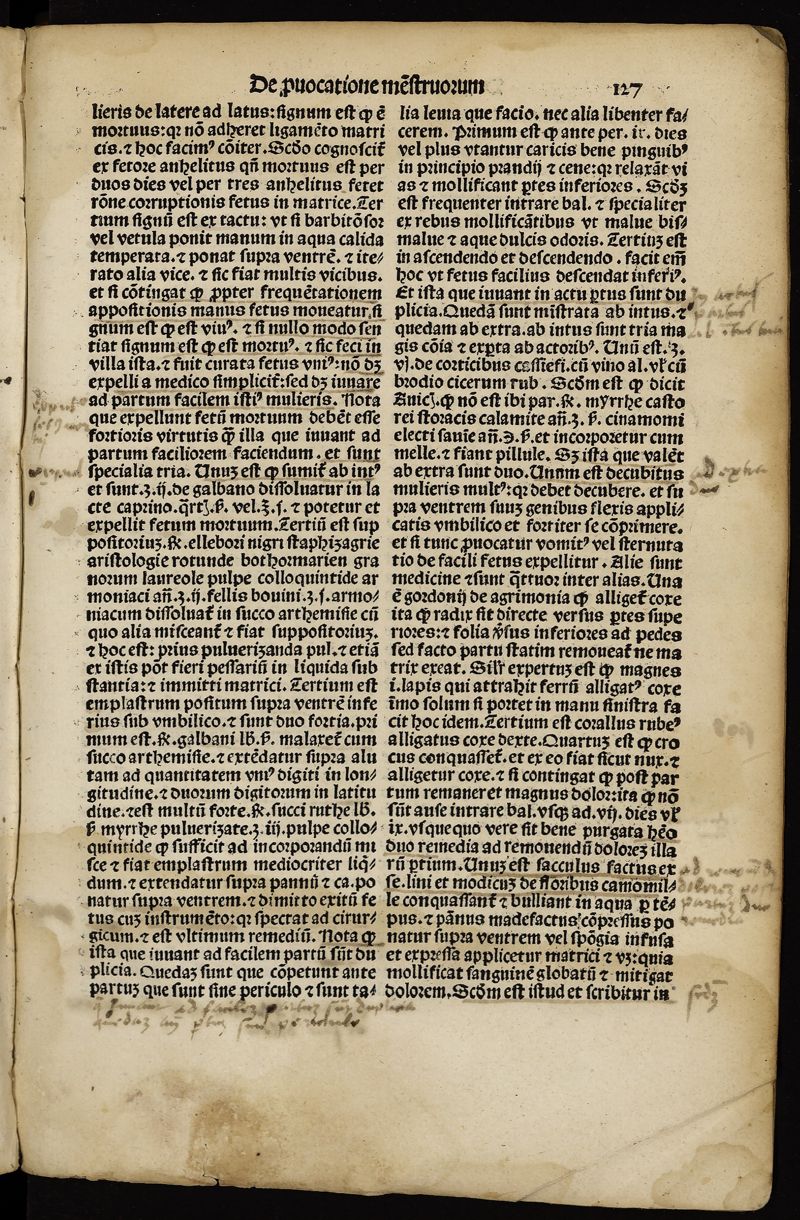 De ꝓuocatione mēſtruorum 127
lieris de latere ad latus: ſignum eſt ꝙ ē
mortuus: qꝛ nō adheret ligamēto matri
cis. ⁊ hoc facimꝰ cōiter. Scḋo cognoſcit᷑
ex fetore anhelitus qn̄ mortuus eſt per
duos dies vel per tres anhelitus fetet
rōne corruptionis fetus in matrice. Ter
tium ſignū eſt ex tactu: vt ſi barbitōſor
vel vetula ponit manum in aqua calida
temperata. ⁊ ponat ſupra ventrē. ⁊ ite/
rato alia vice. ⁊ ſic fiat multis vicibus.
et ſi cōtingat ꝙ ꝓpter frequētationem
appoſitionis manus fetus moueatur, ſi
gnum eſt ꝙ eſt viuꝰ. ⁊ ſi nullo modo ſen
tiat ſignum eſt ꝙ eſt mortuꝰ. ⁊ ſic feci in
villa iſta. ⁊ fuit curata fetus vniꝰ: nō dꝫ
expelli a medico ſimplicit᷑: ſed dꝫ iuuare
ad partum facilem iſtiꝰ mulieris. Nota
que expellunt fetū mortuum debēt eſſe
fortioris virtutis ꝙ̄ illa que iuuant ad
partum faciliorem faciendum. et ſunt
ſpecialia tria. Unuꝫ eſt ꝙ ſumit᷑ ab intꝰ
et ſunt.ʒ.ij.de galbano diſſoluatur in la
cte caprino. q̄rtꝭ.ẞ. vel.ʒ.ſ. ⁊ potetur et
expellit fetum mortuum. Tertiū eſt ſup
poſitoriuꝫ.℞.ellebori nigri ſtaphiʒagrie
ariſtologie rotunde bothormarien gra
norum laureole pulpe colloquintide ar
moniaci an̄.ʒ.ij.fellis bouini.ʒ.ſ.armo/
niacum diſſoluat᷑ in ſucco arthemiſie cū
quo alia miſceant᷑ ⁊ fiat ſuppoſitoriuꝫ.
⁊ hoc eſt: prius pulueriʒanda pul. ⁊ etiā
ex iſtis pōt fieri peſſariū in liquida ſub
ſtantia: ⁊ immitti matrici. Tertium eſt
emplaſtrum poſitum ſupra ventrē infe
rius ſub vmbilico. ⁊ ſunt duo fortia. pri
mum eſt.℞.galbani lb.ẞ. malaxet᷑ cum
ſucco arthemiſie. ⁊ extēdatur ſupra alu
tam ad quantitatem vniꝰ digiti in lon/
gitudine. ⁊ duorum digitorum in latitu
dine. ⁊eſt multū forte.℞.ſucci ruthe lb.
ẞ myrrhe pulueriʒate.ʒ.iij.pulpe collo/
quintide ꝙ ſufficit ad incorporandū mi
ſce ⁊ fiat emplaſtrum mediocriter liq̇/
dum. ⁊ extendatur ſupra pannū ⁊ ca. po
natur ſupra ventrem. ⁊ dimitto exitū fe
tus cuꝫ inſtrumēto: qꝛ ſpectat ad cirur/
gicum. ⁊ eſt vltimum remediū. Nota ꝙ
iſta que iuuant ad facilem partū ſūt du
plicia. Quedaꝫ ſunt que cōpetunt ante
partuꝫ que ſunt ſine periculo ⁊ ſunt ta/
lia leuia que facio. nec alia libenter fa/
cerem. Primum eſt ꝙ ante per. ix. dies
vel plus vtantur caricis bene pinguibꝰ
in principio prandij ⁊ cene: qꝛ relaxāt vi
as ⁊ mollificant ꝑtes inferiores. Scḋꝫ
eſt frequenter intrare bal. ⁊ ſpecialiter
ex rebus mollificātibus vt malue biſ/
malue ⁊ aque dulcis odoris. Tertiuꝫ eſt
in aſcendendo et deſcendendo. facit em̄
hoc vt fetus facilius deſcendat inferiꝰ.
Et iſta que iuuant in actu ꝑtus ſunt du
plicia. Quedā ſunt miſtrata ab intus. ⁊
quedam ab extra. ab intus ſunt tria ma
gis cōia ⁊ exꝑta ab actoribꝰ. Unū eſt.ʒ.
vj.de corticibus caſſiefi. cū vino al. vl᷑ cū
brodio cicerum rub. Scḋm eſt ꝙ dicit
Auicꝭ. ꝙ nō eſt ibi par.℞. myrrhe caſto
rei ſtoracis calamite an̄.ʒ.ẞ. cinamomi
electi ſauīe an̄.℈.ẞ. et incorporetur cum
melle. ⁊ fiant pillule. Sꝫ iſta que valēt
ab extra ſunt duo. Unum eſt decubitus
mulieris multꝰ: qꝛ debet decubere. et ſu
pra ventrem ſuuꝫ genibus flexis appli/
catis vmbilico et fortiter ſe cōprimere.
et ſi tunc ꝓuocatur vomitꝰ vel ſternuta
tio de facili fetus expellitur. Alie ſunt
medicine ⁊ſunt q̄ttuor inter alias. Una
ē gordonij de agrimonia ꝙ alliget᷑ coxe
ita ꝙ radix ſit directe verſus ꝑtes ſupe
riores: ⁊ folia ꝟſus inferiores ad pedes
ſed facto partu ſtatim remoueat᷑ ne ma
trix exeat. Sil᷑r expertuꝫ eſt ꝙ magnes
i. lapis qui attrahit ferrū alligatꝰ coxe
īmo ſolum ſi portet in manu ſiniſtra fa
cit hoc idem. Tertium eſt corallus rubeꝰ
alligatus coxe dexte. Quartuꝫ eſt ꝙ cro
cus conquaſſet᷑. et ex eo fiat ſicut nux. ⁊
alligetur coxe. ⁊ ſi contingat ꝙ poſt par
tum remaneret magnus dolor: ita ꝙ nō
ſūt auſe intrare bal. vſqꝫ ad. vij. dies vl᷑
ix. vſquequo vere ſit bene purgata hēo
duo remedia ad remouendū doloreꝫ illa
rū ꝑtium. Unuꝫ eſt ſacculus factus ex
ſe. lini et modicuꝫ de floribus camomil/
le conquaſſant᷑ ⁊ bulliant in aqua ꝑ tē/
pus. ⁊ pānus madefactus: cōpreſſus po
natur ſupra ventrem vel ſpōgia infuſa
et expreſſa applicetur matrici ⁊ vꝫ: quia
mollificat ſanguinē globatū ⁊ mitigat
dolorem. Scḋm eſt iſtud et ſcribitur in